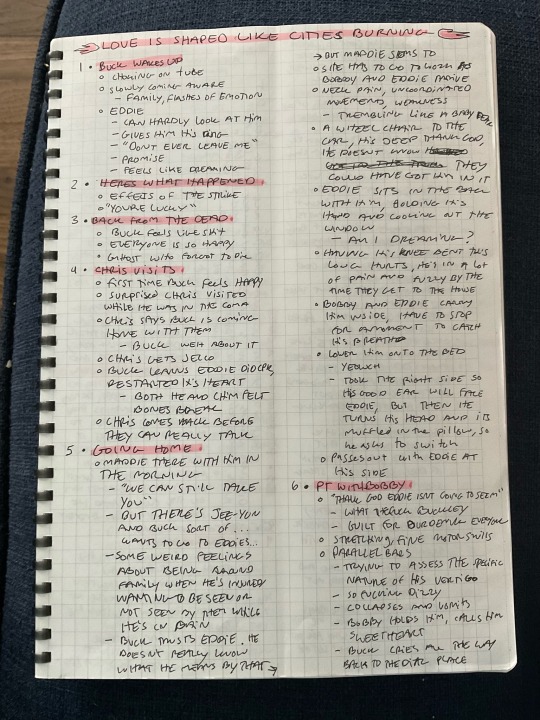 LOVE IS SHAPED LIKE CITIES BURNING
1 • BUCK WAKES UP
○ CHOKING ON TUBE
○ SLOWLY COMING AWARE
- FAMILY, FLASHES OF EMOTION
○ EDDIE
- CAN HARDLY LOOK AT HIM
- GIVES HIM HIS RING
- "DON'T EVER LEAVE ME"
- PROMISE
- FEELS LIKE DREAMING
2 • HERE'S WHAT HAPPENED
○ EFFECTS OF THE STRIKE
○ "YOU'RE LUCKY"
3 • BACK FROM THE DEAD
○ BUCK FEELS LIKE SHIT
○ EVERYONE IS SO HAPPY
○ GHOST WHO FORGOT TO DIE
4 • CHRIS VISITS
○ FIRST TIME BUCK FEELS HAPPY
○ SURPRISED CHRIS VISITED
WHILE HE WAS IN THE COMA
○ CHRIS SAYS BUCK IS COMING
HOME WITH THEM
- BUCK WEH ABOUT IT
○ CHRIS GETS JELLO
○ BUCK LEARNS EDDIE DID CPR,
RESTARTED HIS HEART
- BOTH HE AND CHIM FELT
BONES BREAK
○ CHRIS COMES BACK BEFORE
THEY CAN REALLY TALK
5 • GOING HOME
○ MADDIE THERE WITH HIM IN
THE MORNING
- "WE CAN STILL TAKE
YOU"
- BUT THERE'S JEE-YUN
AND BUCK SORT OF...
WANTS TO GO TO EDDIE'S...
- SOME WEIRD FEELINGS
ABOUT BEING AROUND
FAMILY WHEN HE'S INJURED
WANTING TO BE SEEN OR
NOT SEEN BY THEM WHILE
HE'S IN PAIN
- BUCK TRUSTS EDDIE. HE
DOESN'T REALLY KNOW
WHAT HE MEANS BY THAT →
→ BUT MADDIE SEEMS TO
○ SHE HAS TO GO TO WORK AS
BOBBY AND EDDIE ARRIVE
○ NECK PAIN, UNCOORDINATED
MOVEMENTS, WEAKNESS
- TREMBLING LIKE A BABY DEER
○ A WHEEL CHAIR TO THE
CAR, HIS DEEP THANK GOD,
HE DOESN'T KNOW
THEY
COULD HAVE GOT HIM IN IT
○ EDDIE SITS IN THE BACK
WITH HIM, HOLDING HIS
HAND AND LOOKING OUT THE
WINDOW
- AM I DREAMING?
○ HAVING HIS KNEE BENT THIS
LONG HURTS, HE'S IN A LOT
OF PAIN AND FUZZY BY THE
TIME THEY GET TO THE HOUSE
○ BOBBY AND EDDIE CARRY
HIM INSIDE, HAVE TO STOP
FOR A MOMENT TO CATCH
HIS BREATH
○ LOWER HIM ONTO THE BED
- YEOUCH
- TOOK THE RIGHT SIDE SO
HIS GOOD EAR WILL FACE
EDDIE, BUT THEN HE
TURNS HIS HEAD AND IT'S
MUFFLED IN THE PILLOW, SO
HE ASKS TO SWITCH
○ PASSES OUT WITH EDDIE AT
HIS SIDE
6 • PT WITH BOBBY
○ "THANK GOD EDDIE ISN'T GOING TO SEE THIS"
- BUCKLEY
- GUILT FOR BURDENING EVERYONE
○ STRETCHING, FINE MOTOR SKILLS
○ PARALLEL BARS
- TRYING TO ASSESS THE SPECIFIC
NATURE OF HIS VERTIGO
- SO FUCKING DIZZY
- COLLAPSES AND VOMITS
- BOBBY HOLDS HIM, CALLS HIM
SWEETHEART
- BUCK CRIES ALL THE WAY
BACK TO THE DIAZ PLACE